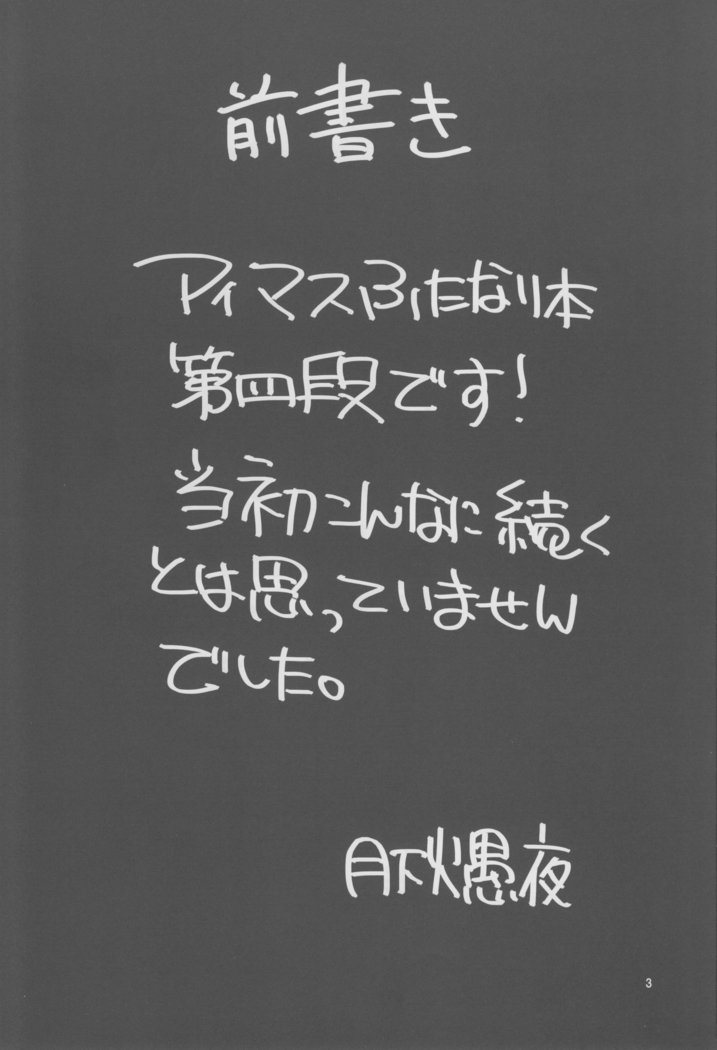 前書き
アイマスふたなり本
第四段です！
当初こんなに続く
とは思っていません
でした。
月下火愚夜
3